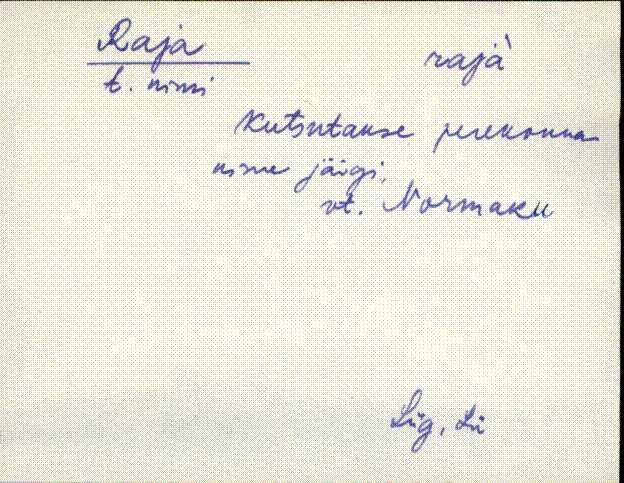 Raja rajà
t. nimi
Kutsutakse perekonna
nime järgi,
vt. Normaku
Lüg, Lü